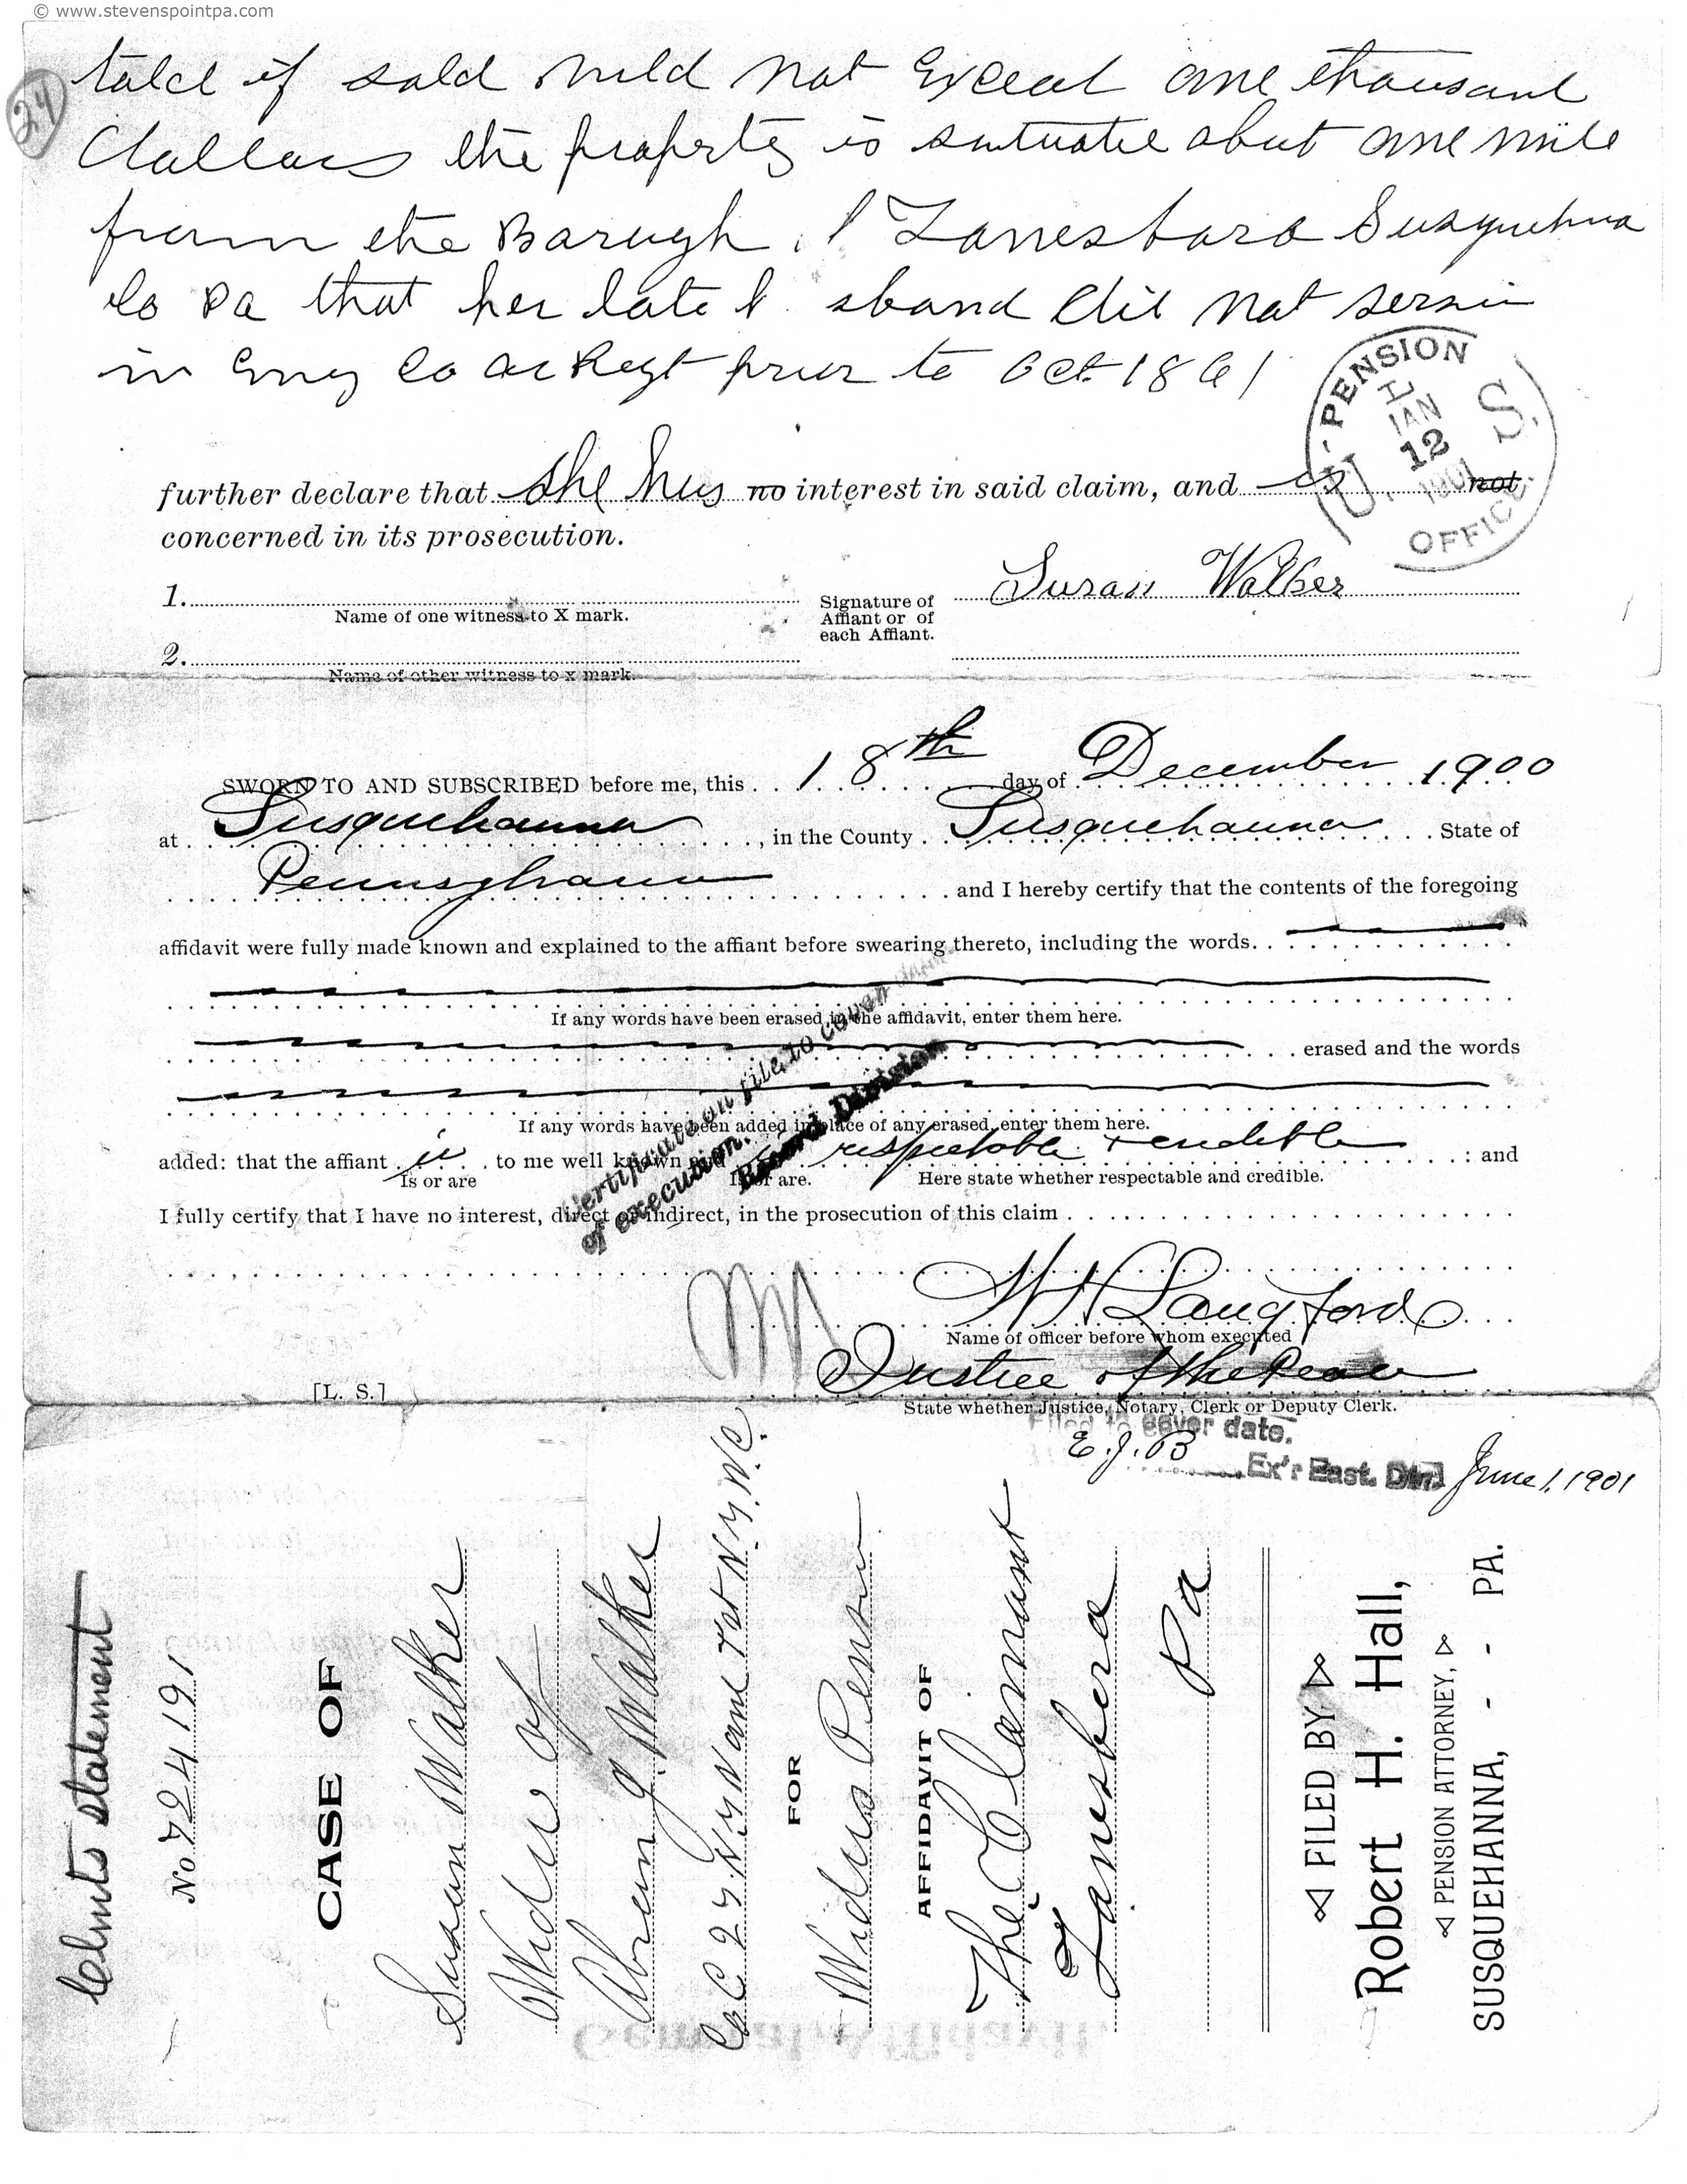 © www.stevenspointpa.com
24
if sold not Exceed one thousand
dollars the property is situated about one mile
from the Barugh Lanesboro Susquehna
Co Pa that her late sband did not Serve
in Eny Co or Regt prior to Oct 1861
U. S. PENSION OFFICE
JAN
12
1901
further declare that she has no interest in said claim, and is not
concerned in its prosecution.
1.
Name of one witness to X mark.
Signature of
Affiant or of
each Affiant.
Susan Walker
2.
Name of other witness to x mark.
SWORN TO AND SUBSCRIBED before me, this 18th day of December 1900
at Susquehanna, in the County Susquehanna State of
Pennsylvania and I hereby certify that the contents of the foregoing
affidavit were fully made known and explained to the affiant before swearing thereto, including the words
If any words have been erased in the affidavit, enter them here.
erased and the words
If any words have been added in place of any erased, enter them here.
added: that the affiant is to me well known and is respectable + credible : and
Is or are
Is or are.
Here state whether respectable and credible.
I fully certify that I have no interest, direct or indirect, in the prosecution of this claim
Certificate on file to cover
of execution. Record Division
M
W H Langford
Name of officer before whom executed
Justice of the Peace
[L. S.]
State whether Justice, Notary, Clerk or Deputy Clerk.
Filed to cover date.
E. J. B Ex'r East. Div. June 1, 1901
Clmts statement
No 724191
CASE OF
Susan Walker
Widow of
Abram J. Walker
Co C 27 N.Y and 1st N.Y. V. C.
FOR
Widows Pension
AFFIDAVIT OF
The Claimant
Lanesboro
Pa
FILED BY
Robert H. Hall,
PENSION ATTORNEY,
SUSQUEHANNA, - - PA.
General Affidavit.